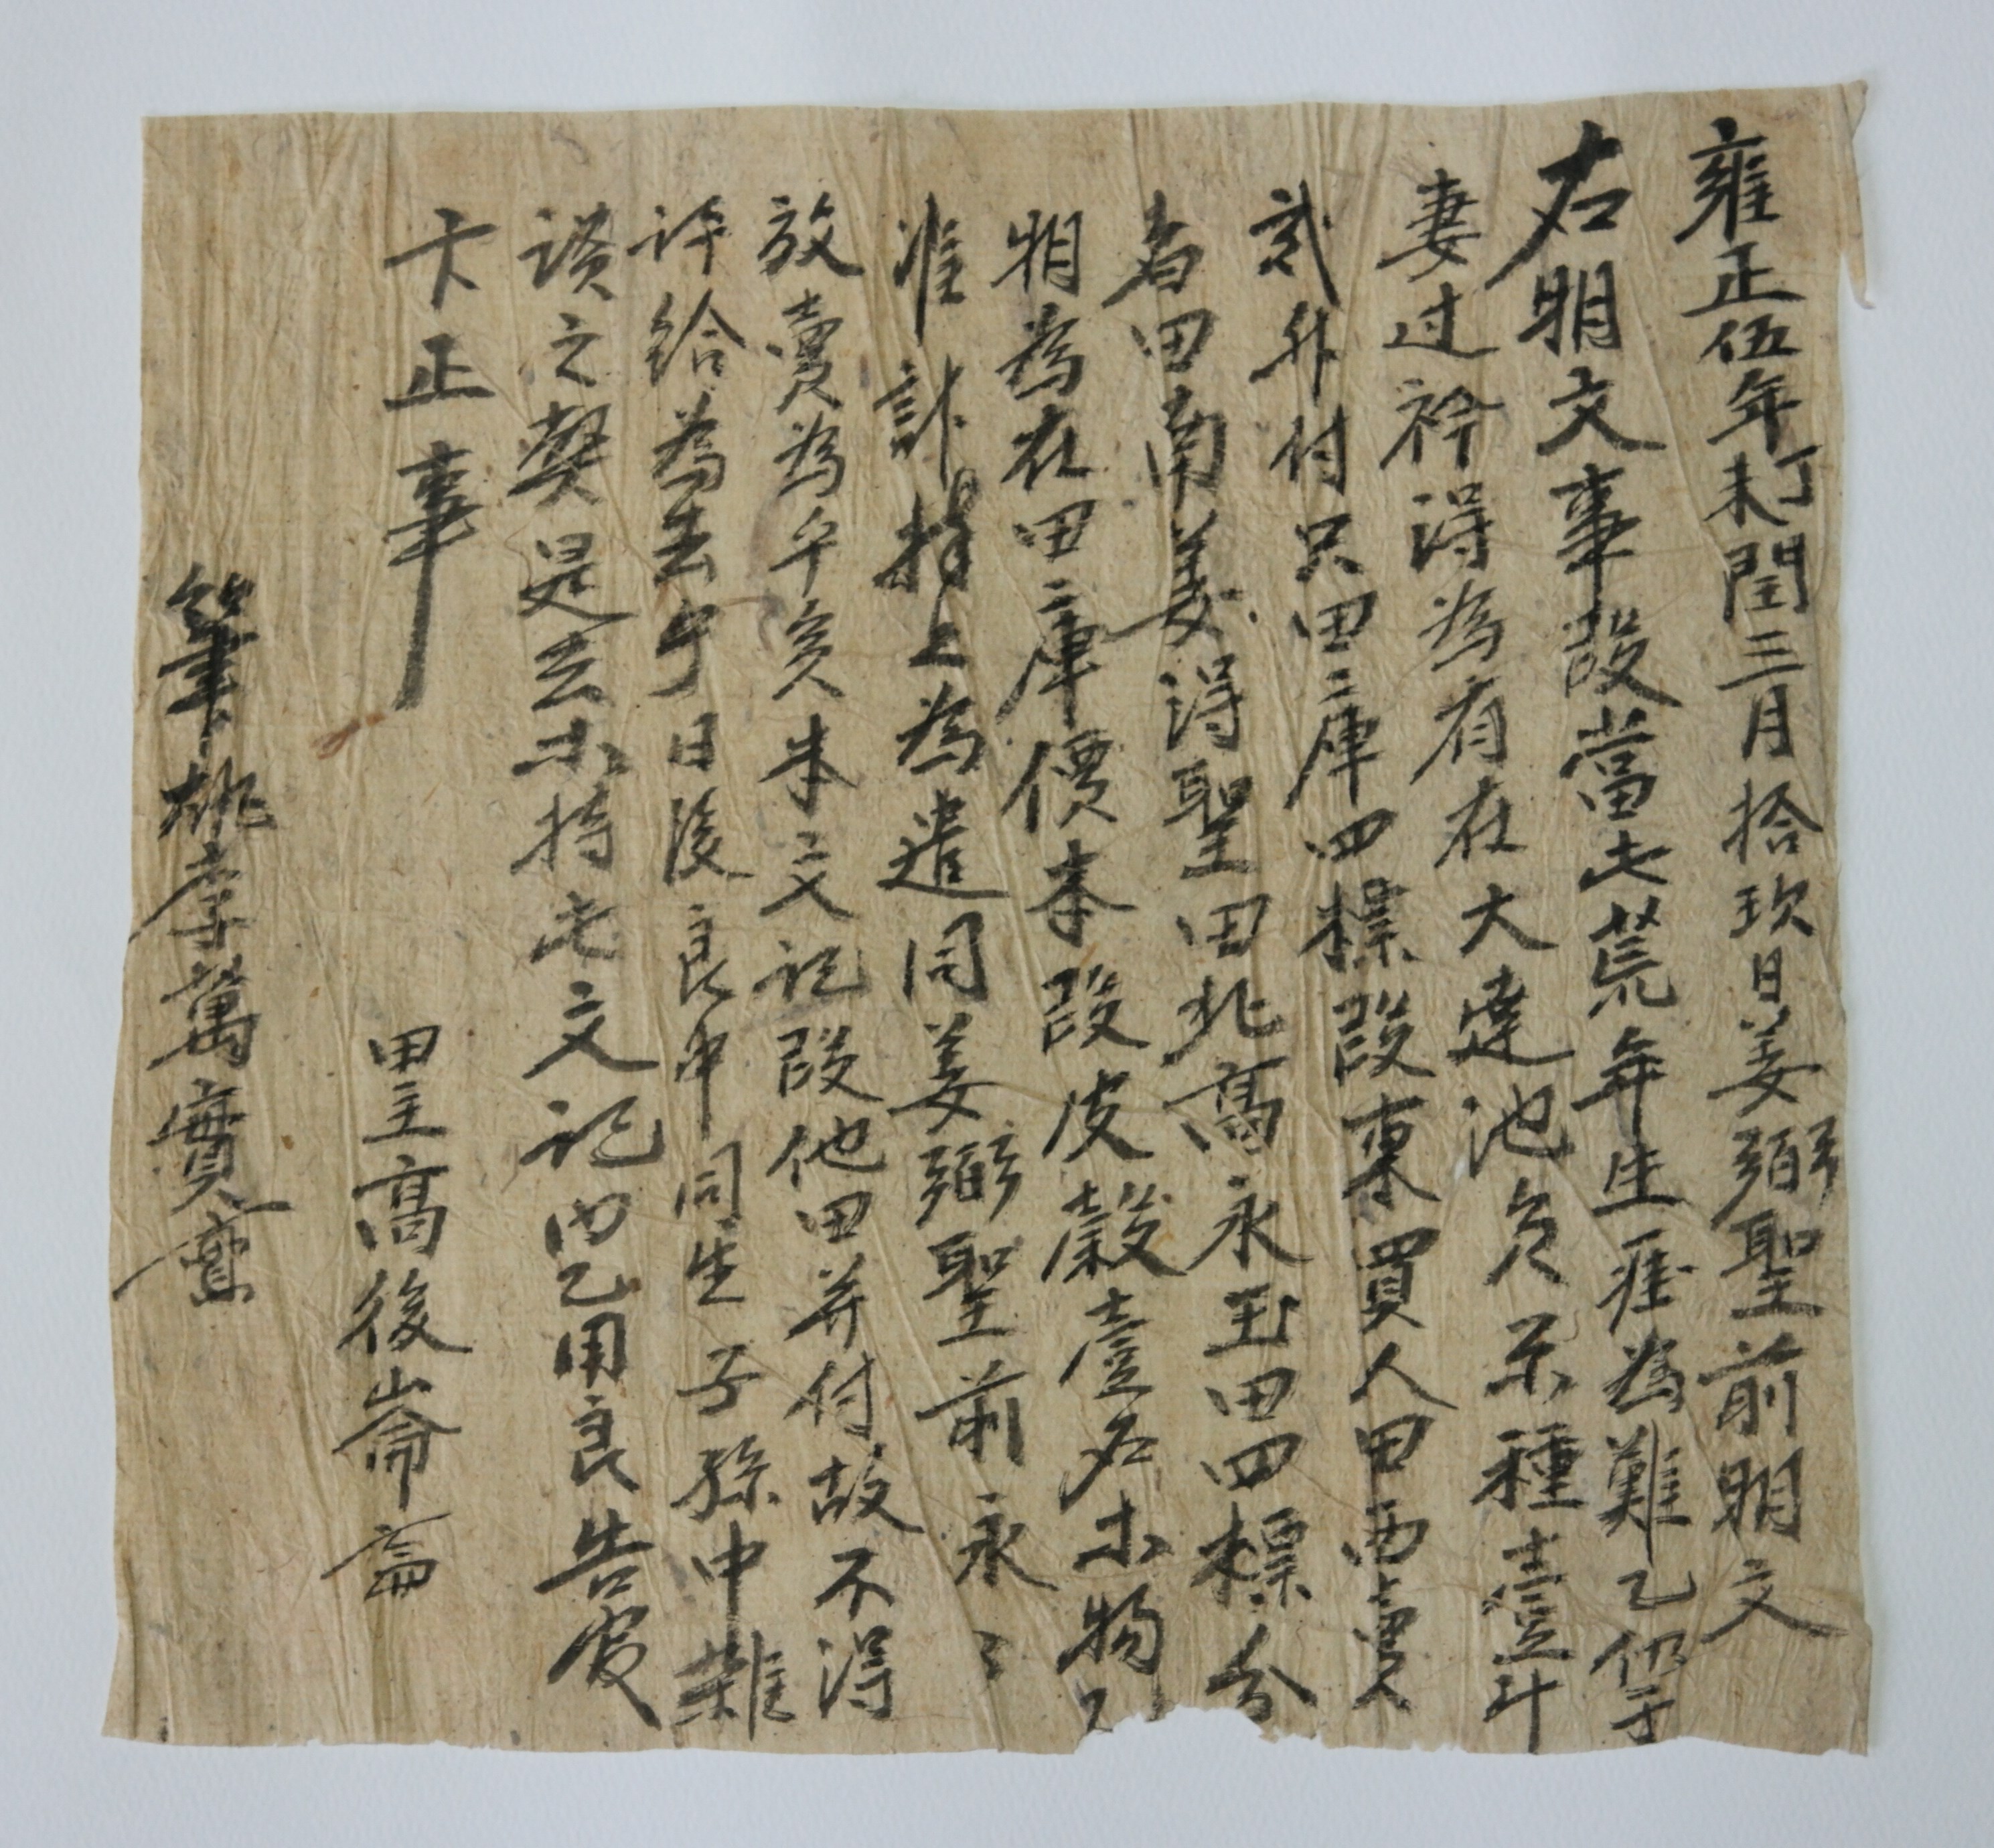 雍正伍年丁未閏三月拾玖日姜弼聖前明文
右明文事段當此荒年生理爲難乙仍于
妻边衿得爲有在大達池員禾種壹斗
貳升付只田二庫四標段東買人田西賣人
者田南姜得聖田北高永玉田四標分
明爲在田二庫價本段皮穀壹石木物
准計捧上爲遣同姜弼聖前永〻
放賣爲乎矣本文記段他田并付故不得
許給爲去乎日後良中同生子孫中雜
談之弊是去等持此文記內乙用良告官
卞正事
田主高後崙
筆執李萬實